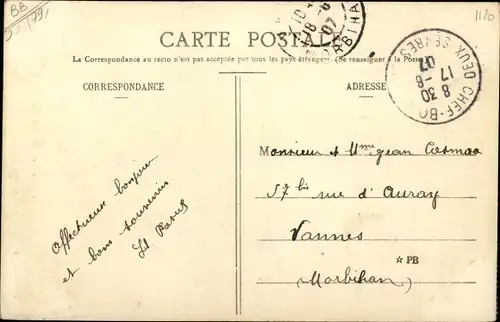 BB
1120
CARTE POSTALE
La Correspondance au recto n'est pas acceptée par tous les pays étrangers. (Se renseigner à la Poste)
CORRESPONDANCE
Affectueux bonjour
et bons souvenirs
ADRESSE
CHEF-BO
DEUX SEVRES
8 30
17 -6
07
Monsieur & Mme Jean Cosmao
57 bis rue d'Auray
Vannes
☆ PB
(Morbihan)